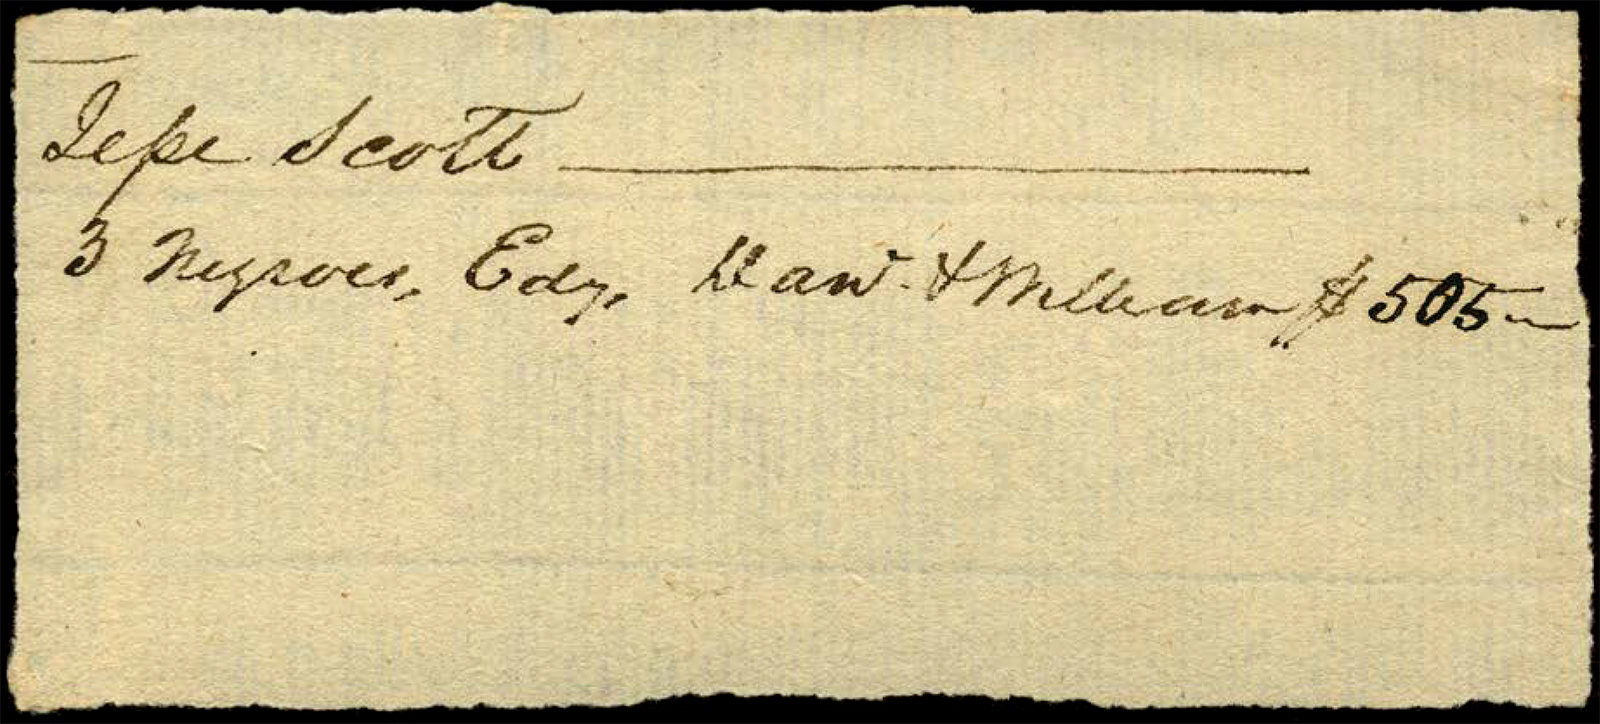 Jesse Scott
3 Negroes, Edy, & William $505